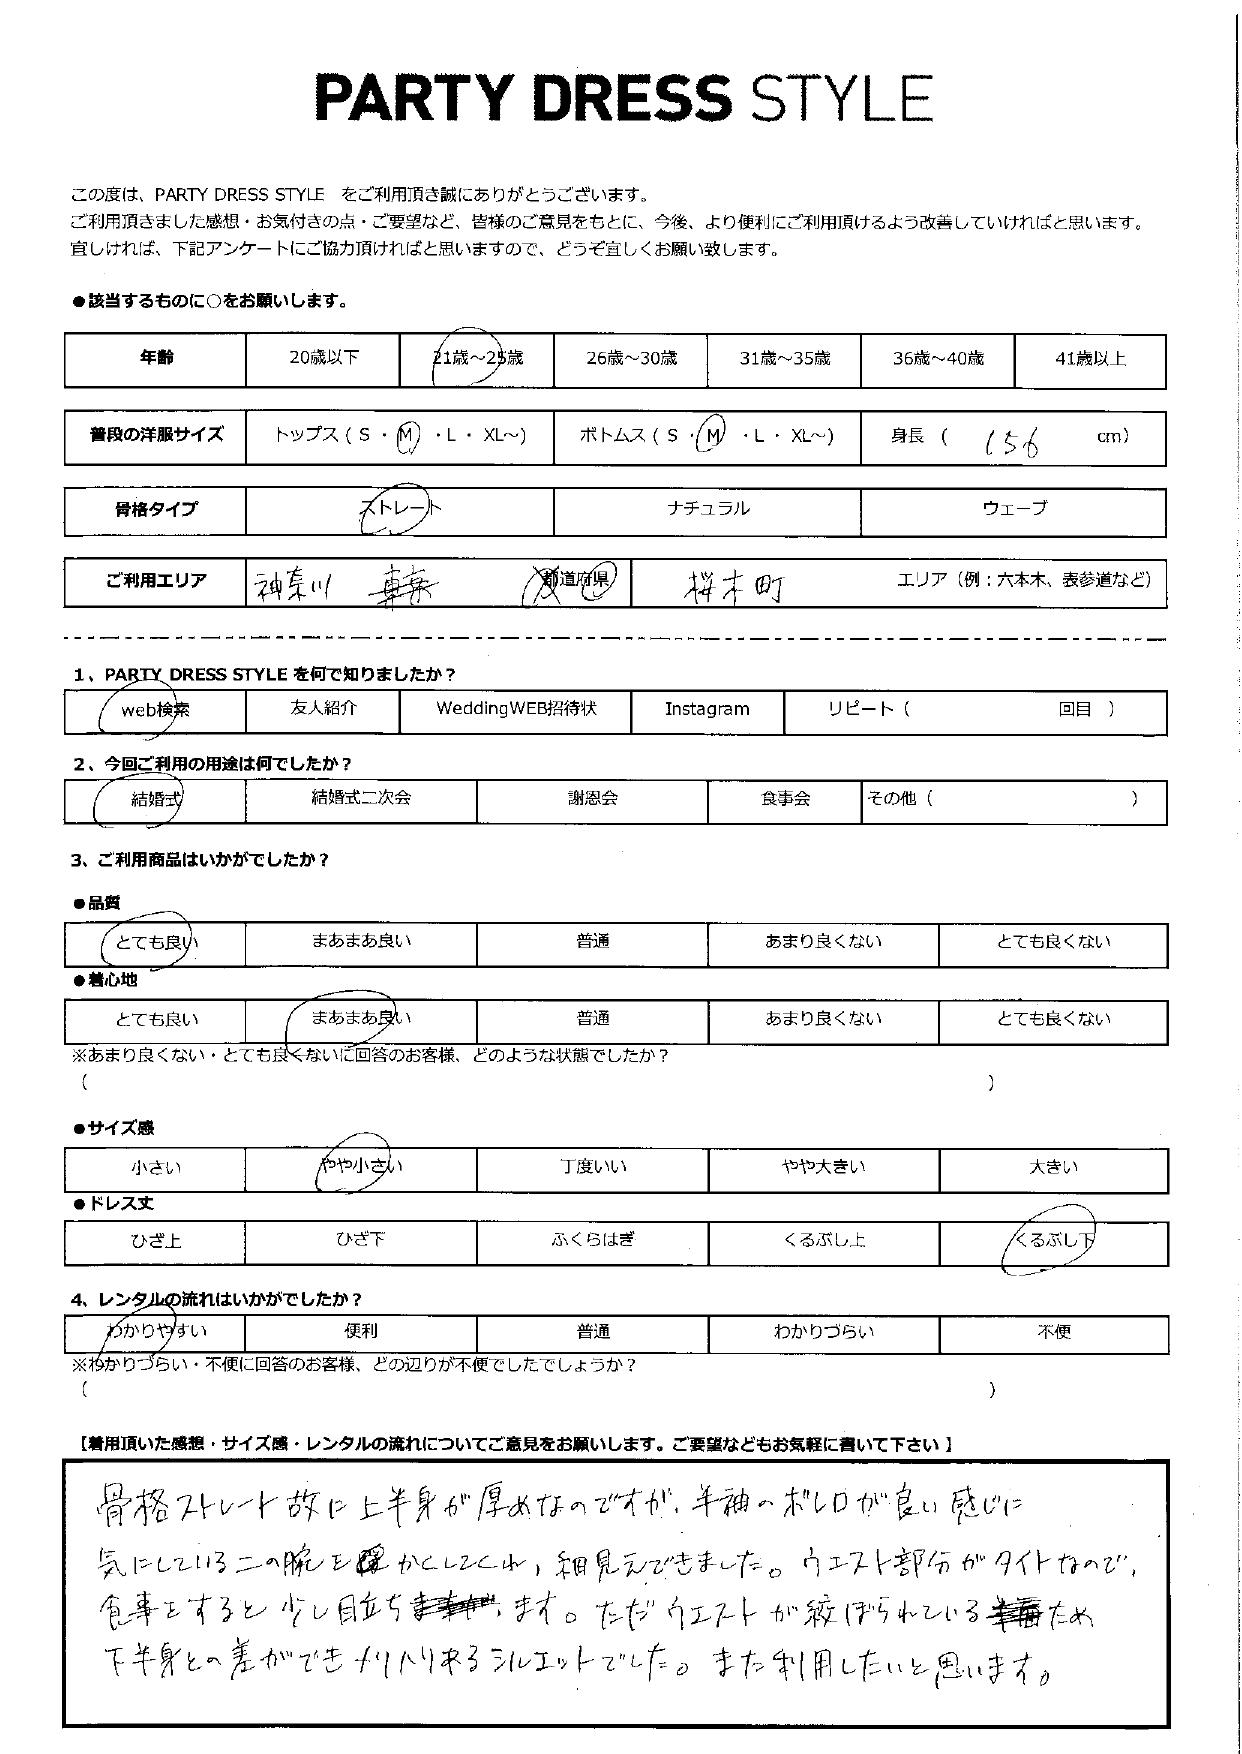 PARTY DRESS STYLE
この度は、PARTY DRESS STYLE をご利用頂き誠にありがとうございます。
ご利用頂きました感想・お気付きの点・ご要望など、皆様のご意見をもとに、今後、より便利にご利用頂けるよう改善していければと思います。
宜しければ、下記アンケートにご協力頂ければと思いますので、どうぞ宜しくお願い致します。
●該当するものに○をお願いします。
年齢 20歳以下 21歳～25歳 26歳～30歳 31歳～35歳 36歳～40歳 41歳以上
普段の洋服サイズ トップス ( S ・ M ・L ・ XL～) ボトムス ( S ・ M ・L ・ XL～) 身長 ( 156 cm)
骨格タイプ ストレート ナチュラル ウェーブ
ご利用エリア 神奈川 都道府県 桜木町 エリア（例：六本木、表参道など）
1、PARTY DRESS STYLE を何で知りましたか？
web検索 友人紹介 WeddingWEB招待状 Instagram リピート ( 回目 )
2、今回ご利用の用途は何でしたか？
結婚式 結婚式二次会 謝恩会 食事会 その他 ( )
3、ご利用商品はいかがでしたか？
●品質
とても良い まあまあ良い 普通 あまり良くない とても良くない
●着心地
とても良い まあまあ良い 普通 あまり良くない とても良くない
※あまり良くない・とても良くないに回答のお客様、どのような状態でしたか？
( )
●サイズ感
小さい やや小さい 丁度いい やや大きい 大きい
●ドレス丈
ひざ上 ひざ下 ふくらはぎ くるぶし上 くるぶし下
4、レンタルの流れはいかがでしたか？
わかりやすい 便利 普通 わかりづらい 不便
※わかりづらい・不便に回答のお客様、どの辺りが不便でしたでしょうか？
( )
【着用頂いた感想・サイズ感・レンタルの流れについてご意見をお願いします。ご要望などもお気軽に書いて下さい】
骨格ストレート故に上半身が厚めなのですが、半袖のボレロが良い感じに
気にしている二の腕を かくしてくれ、細見えできました。ウエスト部分がタイトなので、
食事をすると少し目立ち ます。ただウエストが絞ばられている ため
下半身との差ができメリハリ来るシルエットでした。また利用したいと思います。